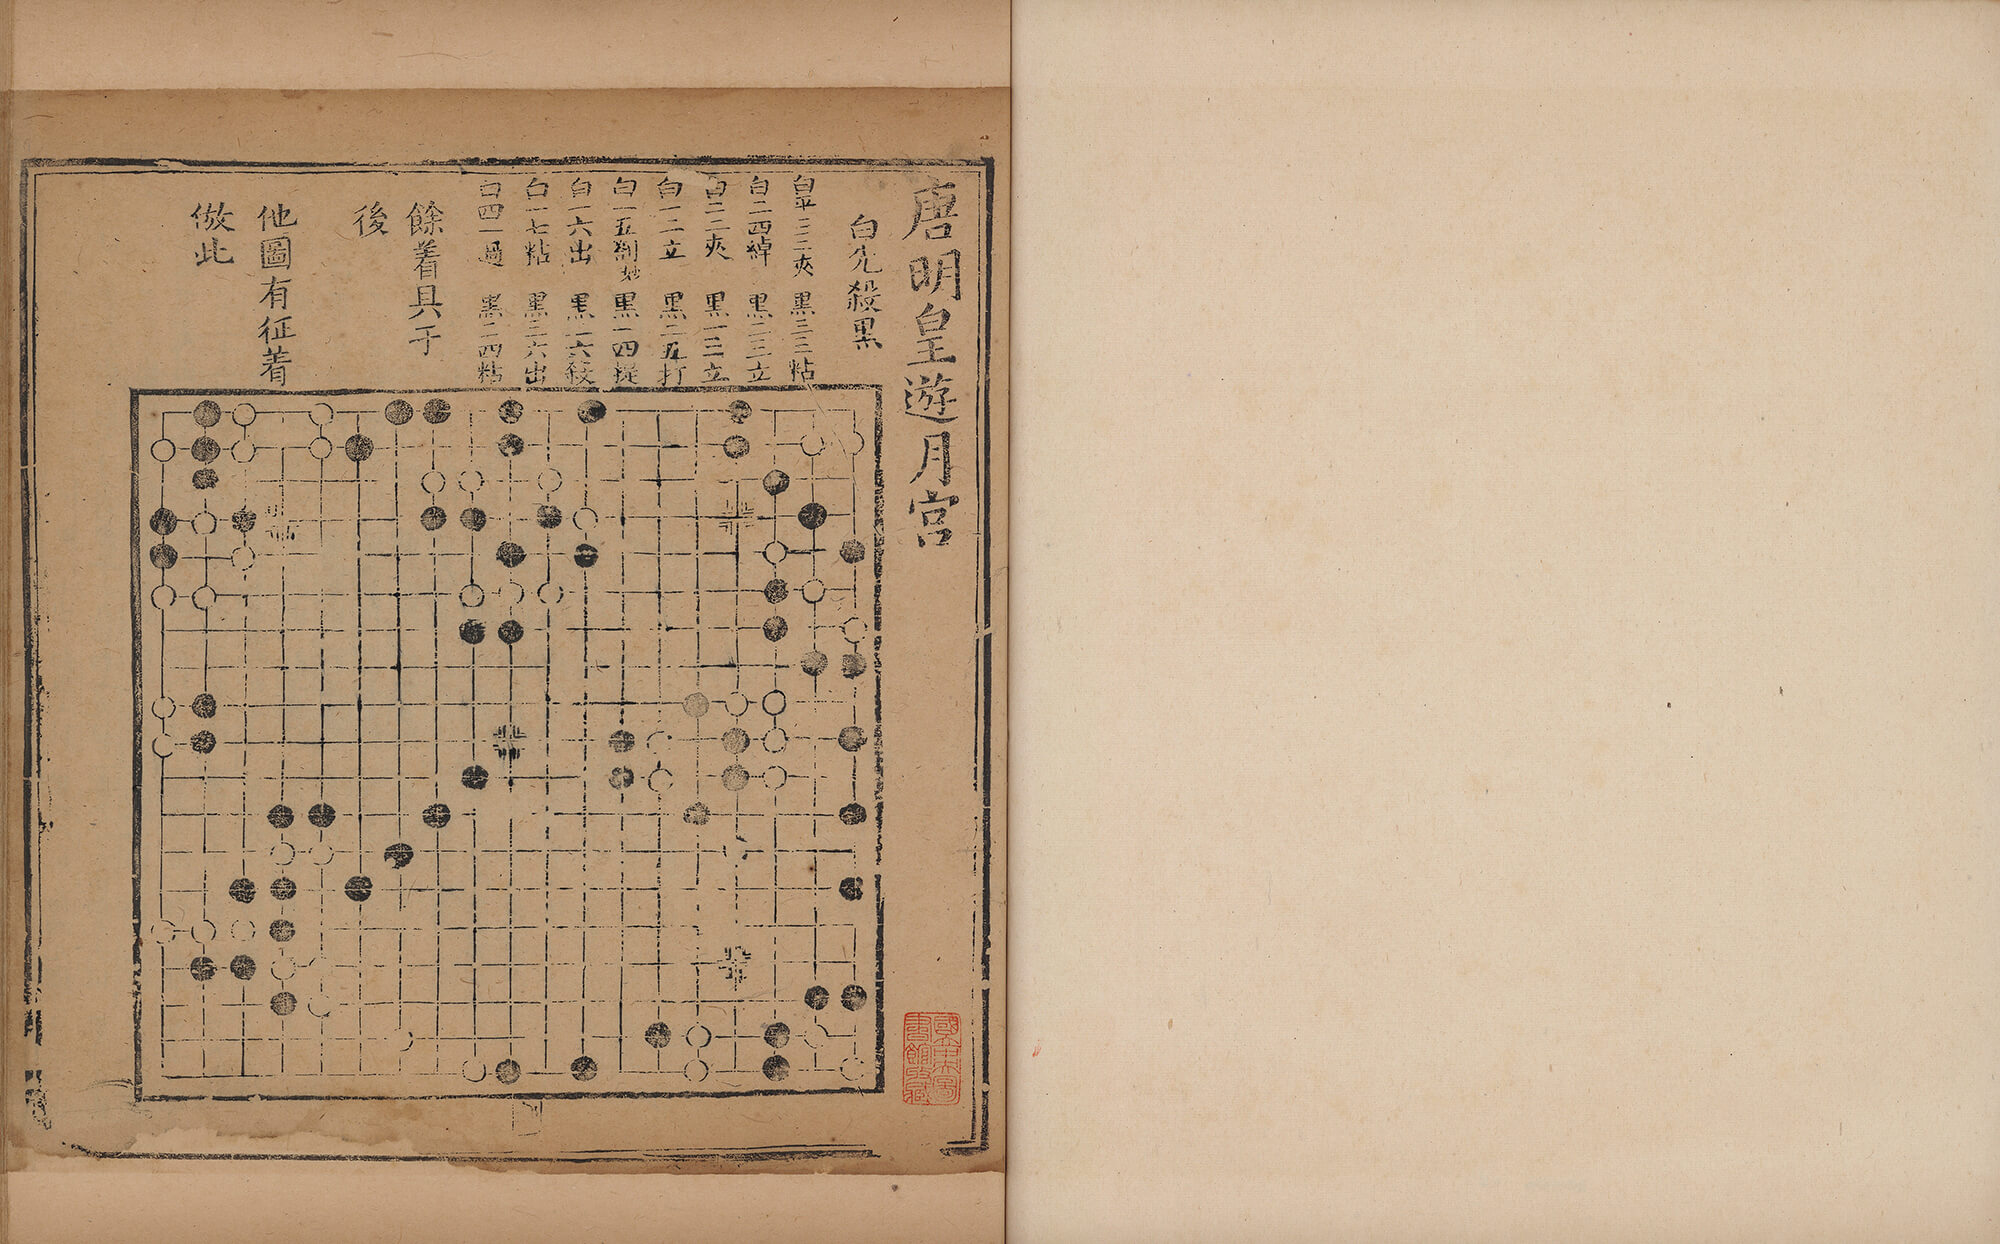 唐明皇遊月宮
白先殺黑
白平三二夾 黑三三粘
白二四綽 黑二三立
白二二夾 黑一三立
白一二立 黑二五打
白一五劄妙 黑一四提
白一六出 黑一六殺
白一七粘 黑三六出
白四一過 黑二四粘
餘着具于
後
他圖有征着
倣此
國立中央圖
書館收藏